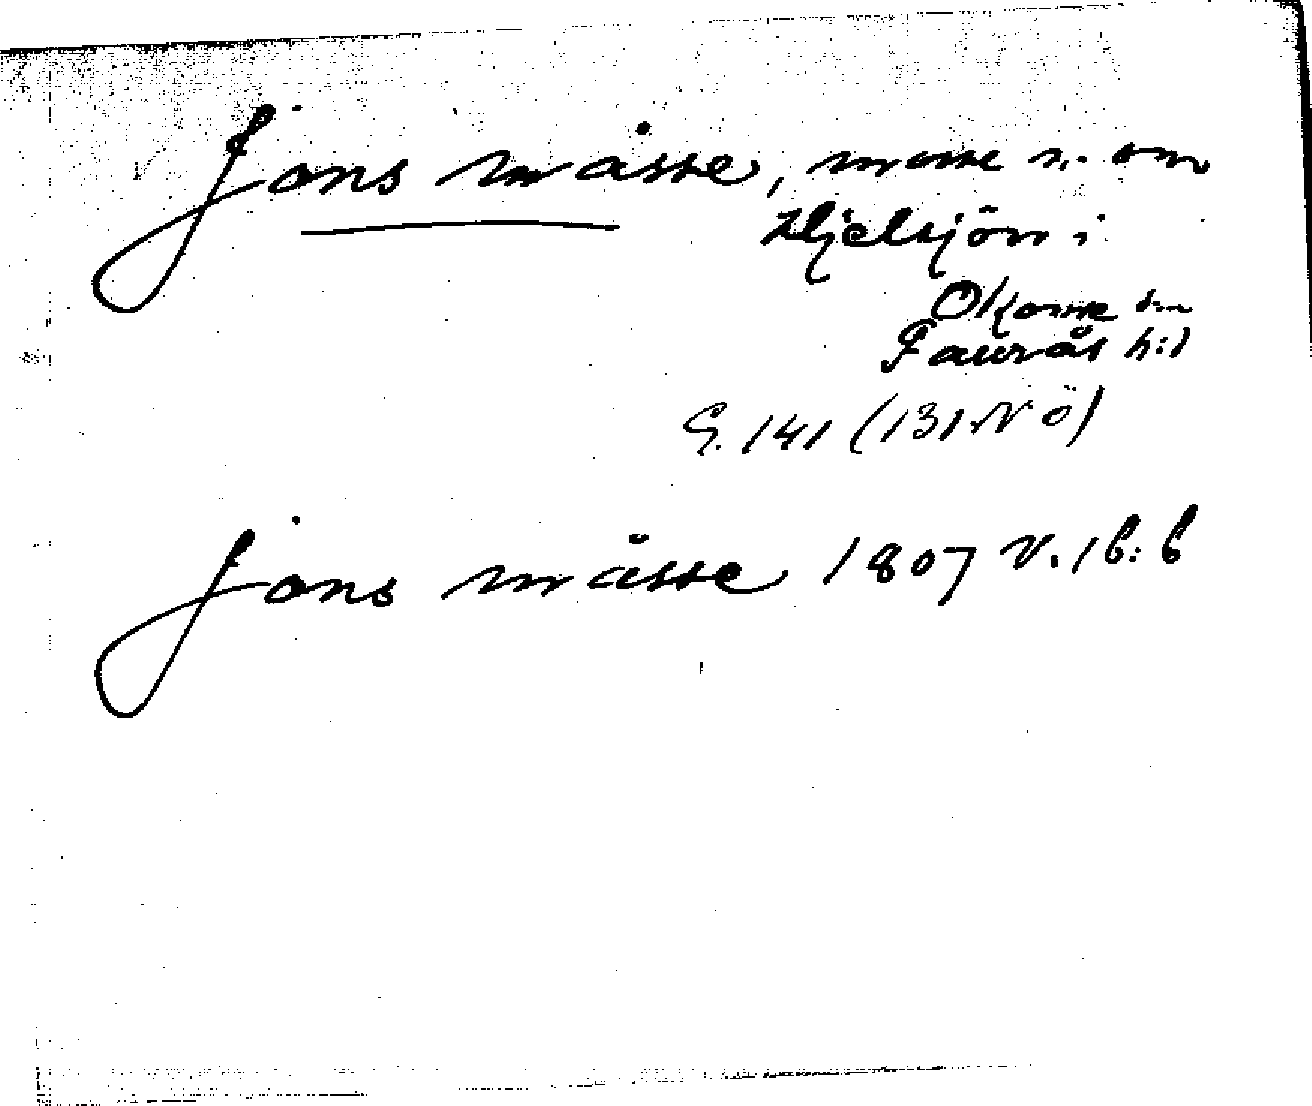 Jons måsse, mosse n. om
Hjelsjön i
Okome sn
Faurås hd
G. 141 (131 NÖ)
Jons måsse 1807 V. 16:6